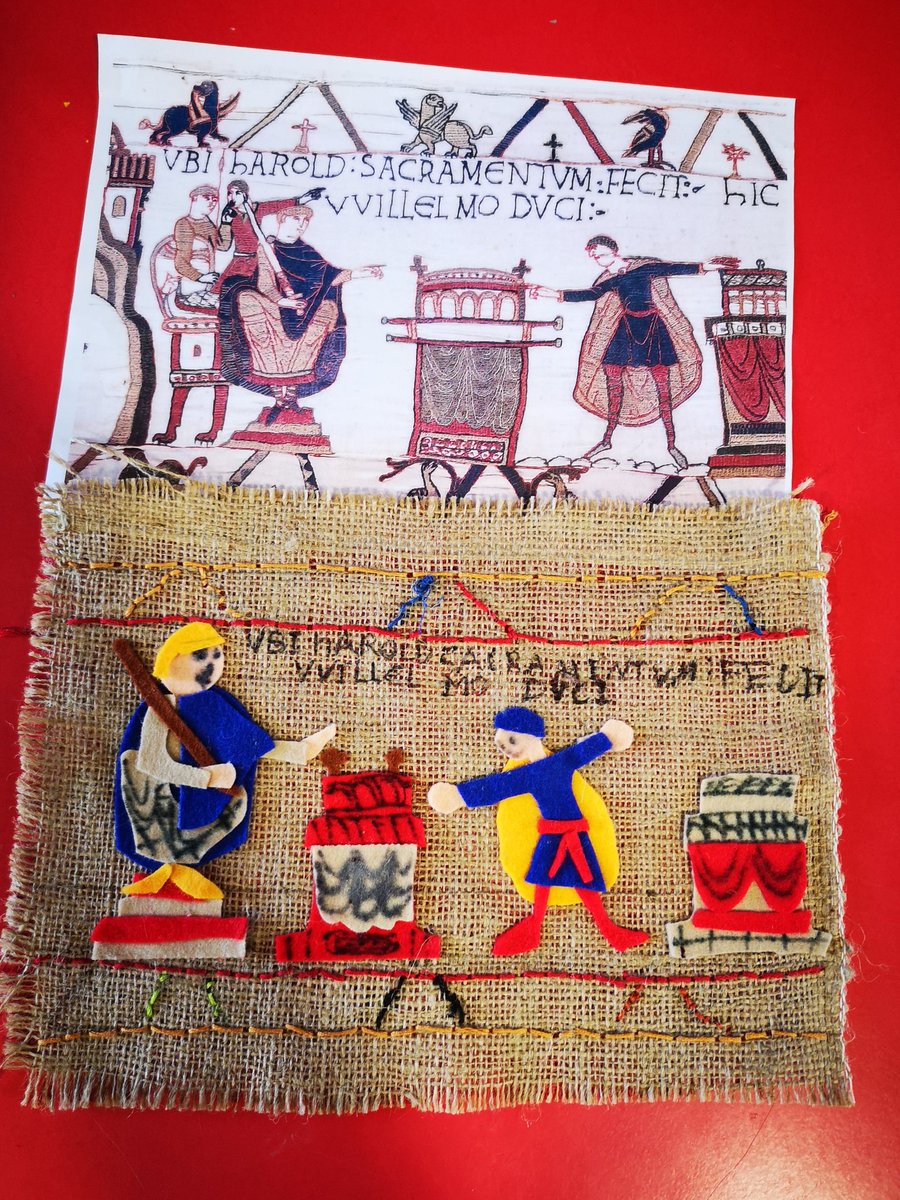 VBI hAROLD : SACRAMENTVM : FECIT :- hIC
VVILLELMO DVCI :-
VBI hAROLD SACRAMENTVM : FECIT
VVILLEL MO DVCI